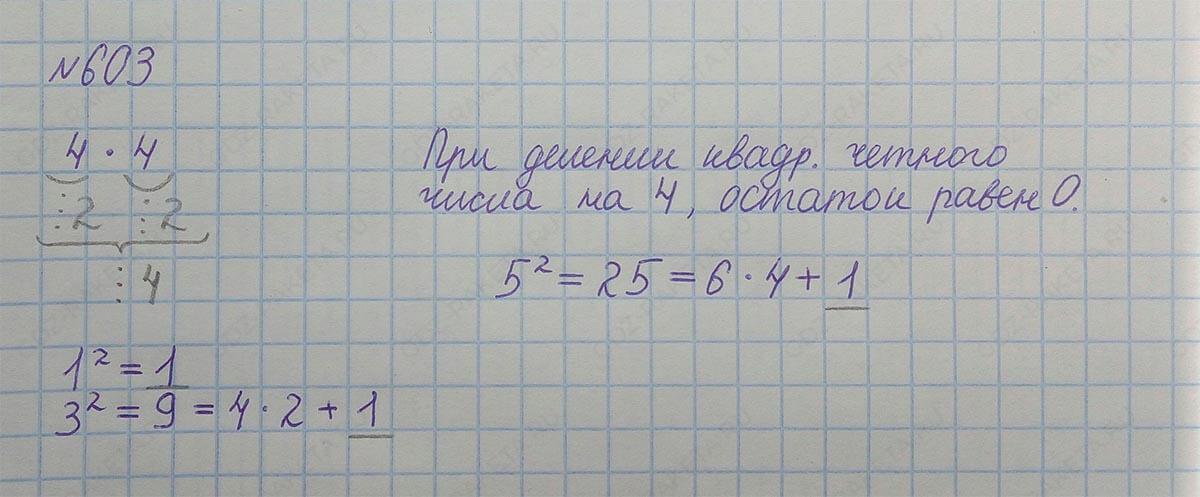 №603
4 · 4
⋮2 ⋮2
⋮4
При делении квадр. четного
числа на 4, остаток равен 0.
5² = 25 = 6 · 4 + 1
1² = 1
3² = 9 = 4 · 2 + 1